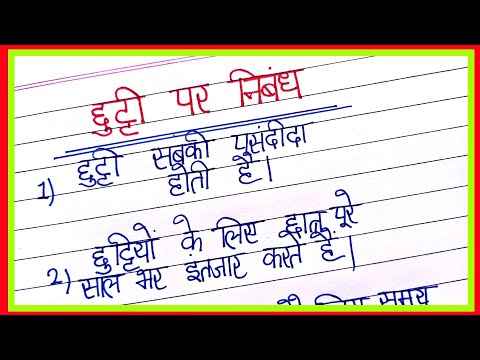 छुट्टी पर निबंध
1) छुट्टी सबकी पसंदीदा
होती है।
छुट्टियों के लिए छात्र पूरे
2) साल भर इंतजार करते हैं।
समय